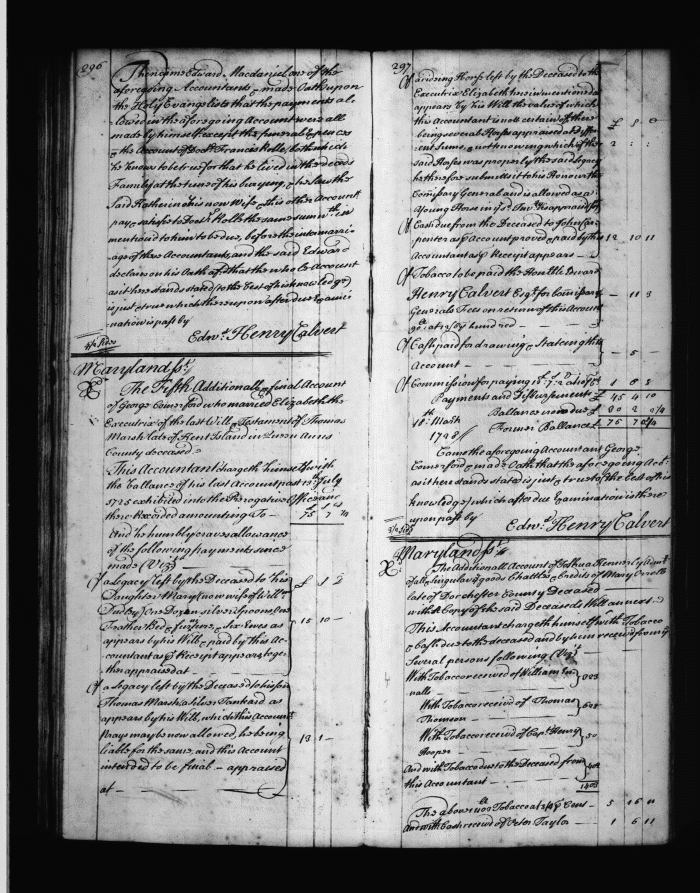 296
Then came Edward Macdaniel one of the
aforegoing Accountants & made Oath upon
the Holy Evangelists that the payments al-
lowed in the aforegoing Account were all
made by himself except the funeral expences
& the Account of Doctr. Francis Rolle, both which
he knows to be true for that he lived in the
Family at the time of his burying, & he saw the
said Katherine his now Wife
pay & satisfie to Doctr. Rolle the same sum
mentioned to him to be due, before the intermarri-
age of these Accountants, and the said Edward
declares on his Oath afd. that the whole Account
as it here stands stated to the best of his knowledge,
is just & true which thereupon after due Exami-
nation is past by
Edwd. Henry Calvert
Maryland ss.
The Fifth Additional & final Account
of George Comerford who married Elizabeth the
Executrix of the last Will & Testament of Thomas
Marsh late of Kent Island in Queen Anns
County deceased
This Accountant chargeth himself with
the Ballance of his last Account past July
1725 exhibited into the Prerogative Office and
there Recorded amounting To
75 7
And he humbly craves allowance
of the following payments since
made (Vizt.)
Of a legacy left by the Deceased to his
Daughter Mary (now wife of Willm.
Dudley) One Dozen silver Spoons, One
Feather Bed & furre., Six Ewes as
appears by his Will, paid by this Ac-
countant as Receipt appears, toge-
ther appraised at
15 10
Of a legacy left by the Deceased to his son
Thomas Marsh a silver Tankard as
appears by his Will, which this Account
prays may be now allowed, he being
liable for the same, and this Account
intended to be final – appraised
at
13 1
297
Of a riding Horse left by the Deceased to the
Executrix Elizabeth herein mentioned as
appears by his Will the value of which
this Accountant is not certain of there
being several Horses appraised at differ-
ent sums, & not knowing which of the
said Horses was properly the said legacy
he therefore submits it to his Honour the
Comissary General and is allowed as a
Young Horse in ye. Invty. is appraised
Of Cash due from the Deceased to John Car-
penter as Account proved & paid by this
Accountant as Receipt appears
12 10 11
Of Tobacco to be paid the Honble. Edward
Henry Calvert Esqr. for Comissary
Generals Fees on return of this Account
11 3
Of Cash paid for drawing & Stating this
Account
5
Of Commission for paying
1 8 8
Payments and Disbursements £ 45 4 10
Ballance now due £
Former Ballance £
18th. March
1728/
Came the aforegoing Accountant George
Comerford & made Oath that the aforegoing Acct.
as it here stands stated is just & true to the best of his
knowledge, which after due Examination is there-
upon past by
Edwd. Henry Calvert
Maryland ss.
The Additionall Account of Joshua Kennerly Admr.
of all & singular ye. goods Chattles & Credits of Mary
late of Dorchester County Deceased
with a Copy of the said Deceaseds Will annext
This Accountant chargeth himself with Tobacco
& Cash due to the deceased and by him received from ye.
Several persons following (Vizt.)
With Tobacco received of William
With Tobacco received of Thomas
Thomson
With Tobacco received of Capt. Henry
Hooper
And with Tobacco due to the Deceased from
this Accountant
1403
The above Tobacco at Cent 5 16 11
And with Cash received of Peter Taylor 1 6 11